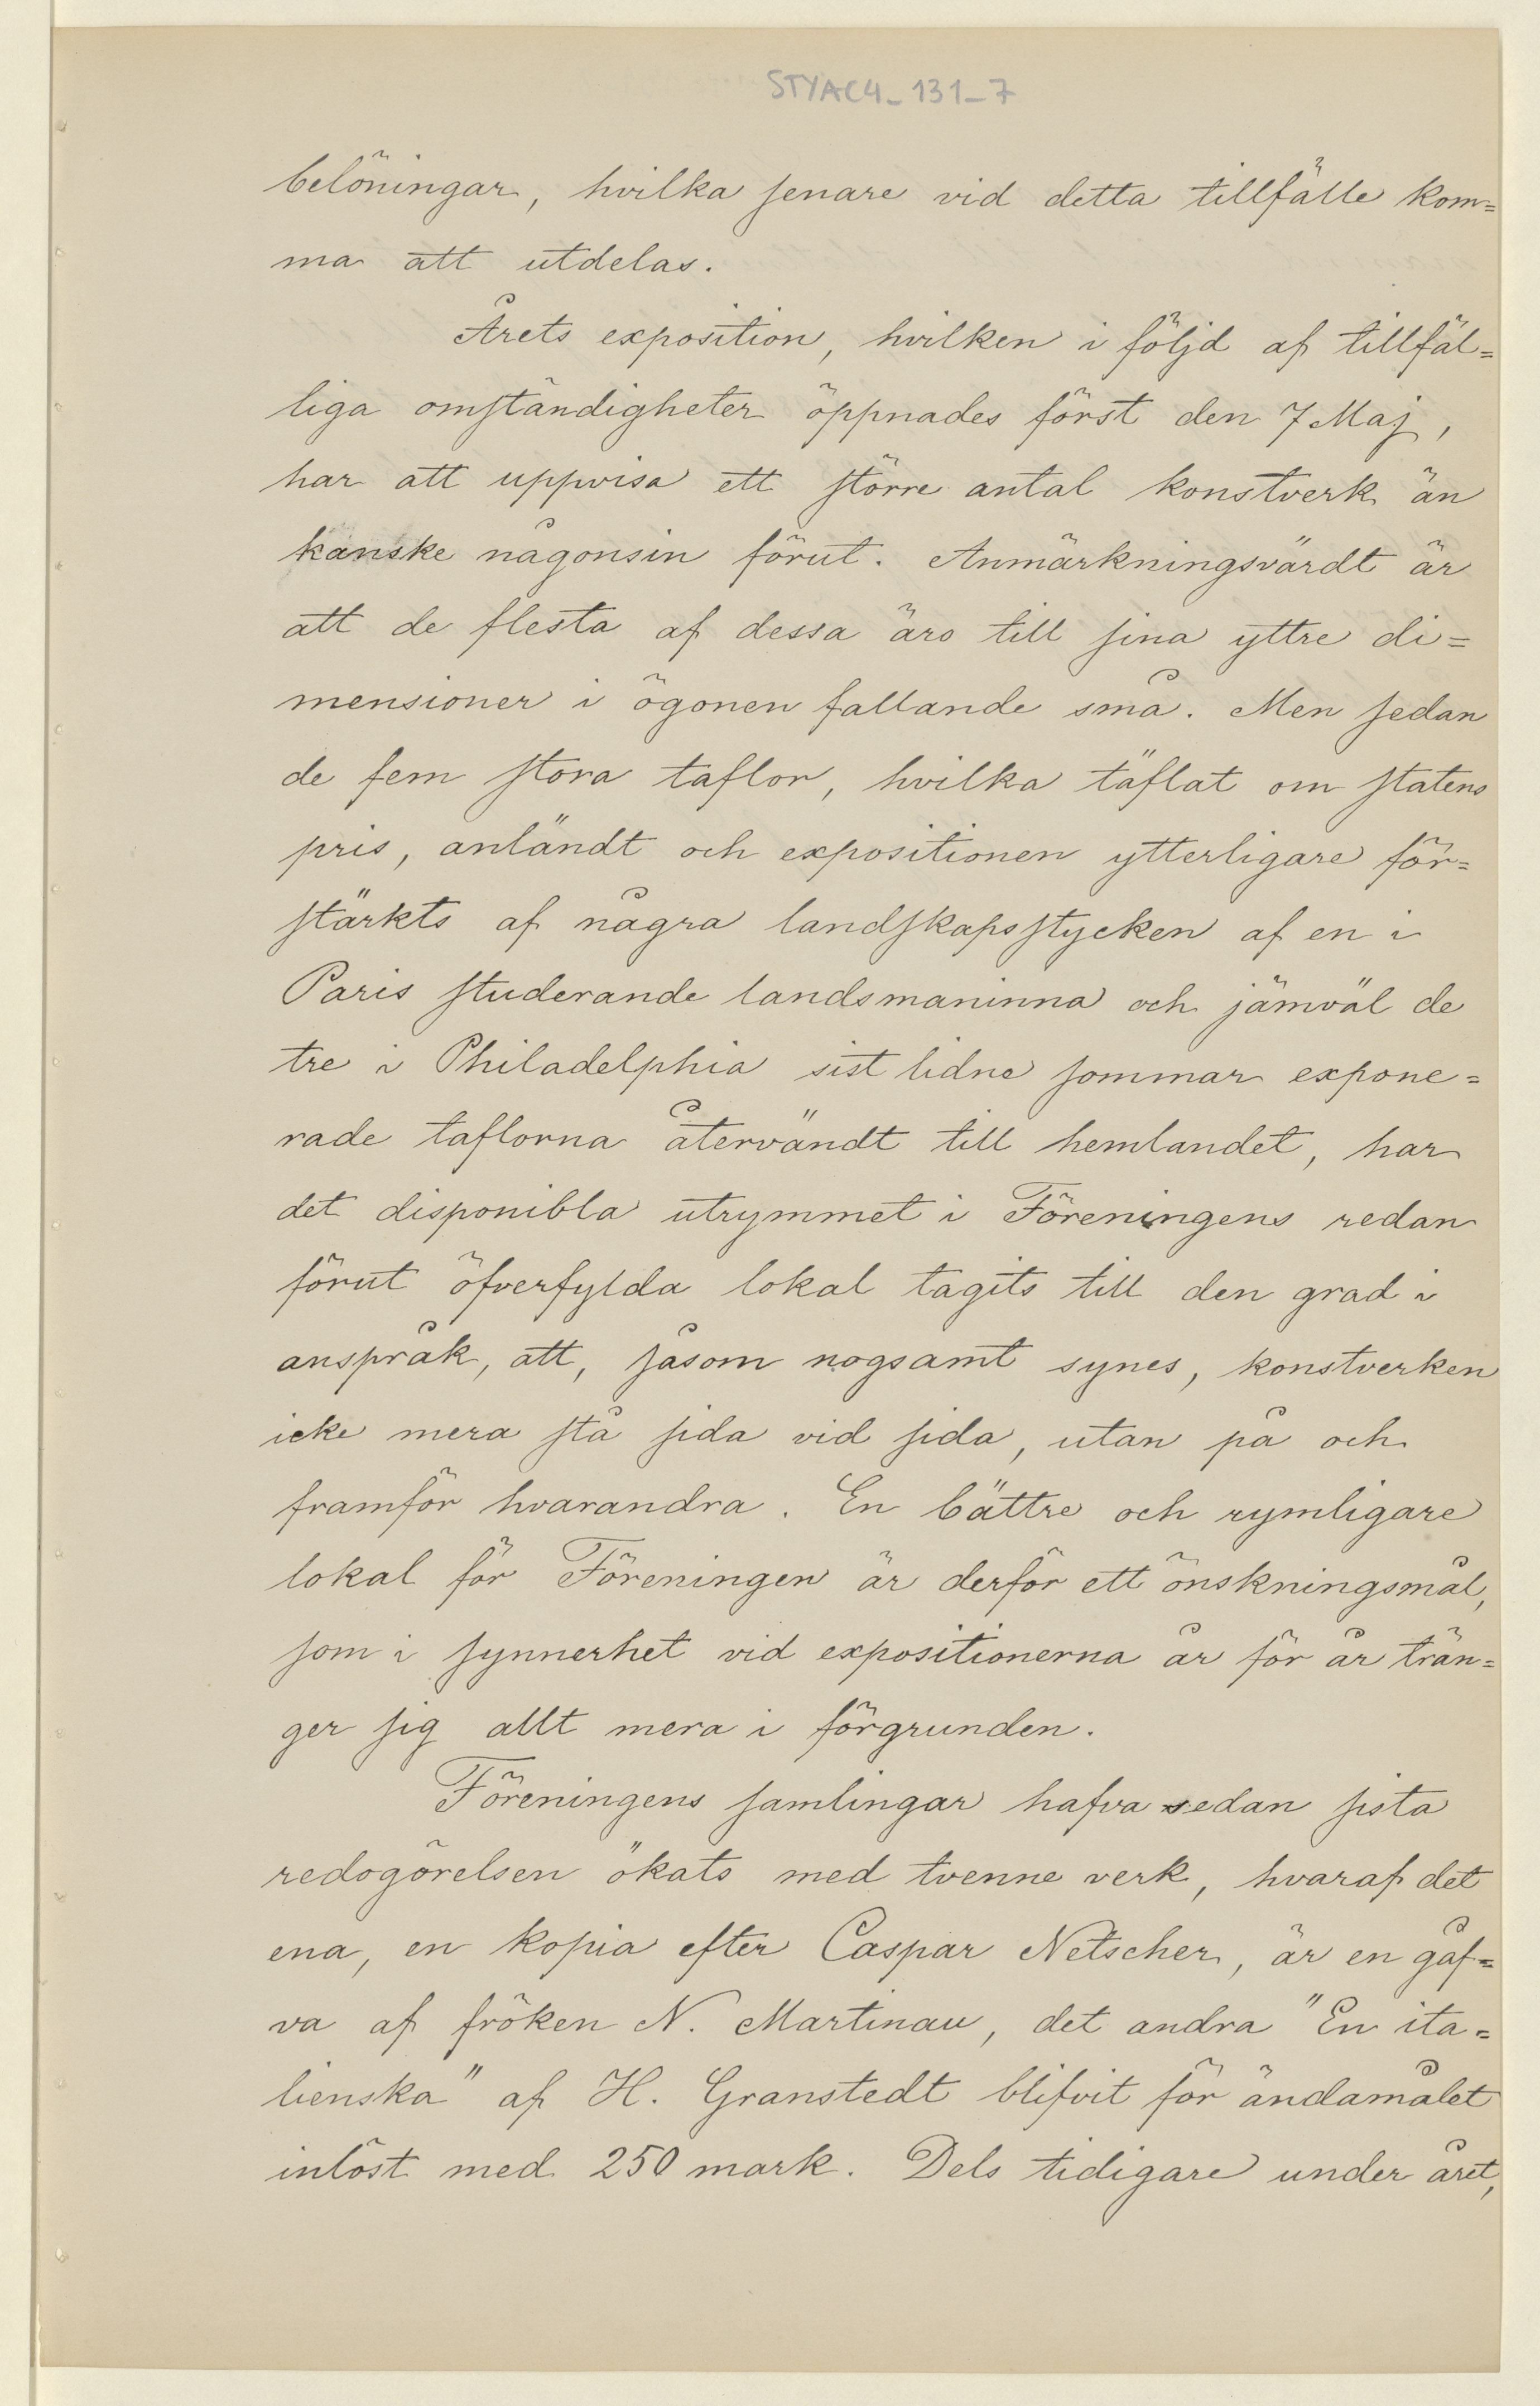 STYAC4_131_7
belöningar, hvilka senare vid detta tillfälle kom=
ma att utdelas.
Årets exposition, hvilken i följd af tillfäl=
liga omständigheter öppnades först den 7 Maj,
har att uppvisa ett större antal konstverk än
kanske någonsin förut. Anmärkningsvärdt är
att de flesta af dessa äro till sina yttre di=
mensioner i ögonen fallande små. Men sedan
de fem stora taflor, hvilka täflat om statens
pris, anländt och expositionen ytterligare för=
stärkts af några landskapsstycken af en i
Paris studerande landsmaninna och jämväl de
tre i Philadelphia sist lidne sommar expone=
rade taflorna återvändt till hemlandet, har
det disponibla utrymmet i Föreningens redan
förut öfverfylda lokal tagits till den grad i
anspråk, att, såsom nogsamt synes, konstverken
icke mera stå sida vid sida, utan på och
framför hvarandra. En bättre och rymligare
lokal för Föreningen är derför ett önskningsmål,
som i synnerhet vid expositionerna år för år trän=
ger sig allt mera i förgrunden.
Föreningens samlingar hafva sedan sista
redogörelsen ökats med tvenne verk, hvaraf det
ena, en kopia efter Caspar Netscher, är en gåf=
va af fröken N. Martinau, det andra "En ita=
lienska" af H. Granstedt blifvit för ändamålet
inlöst med 250 mark. Dels tidigare under året,